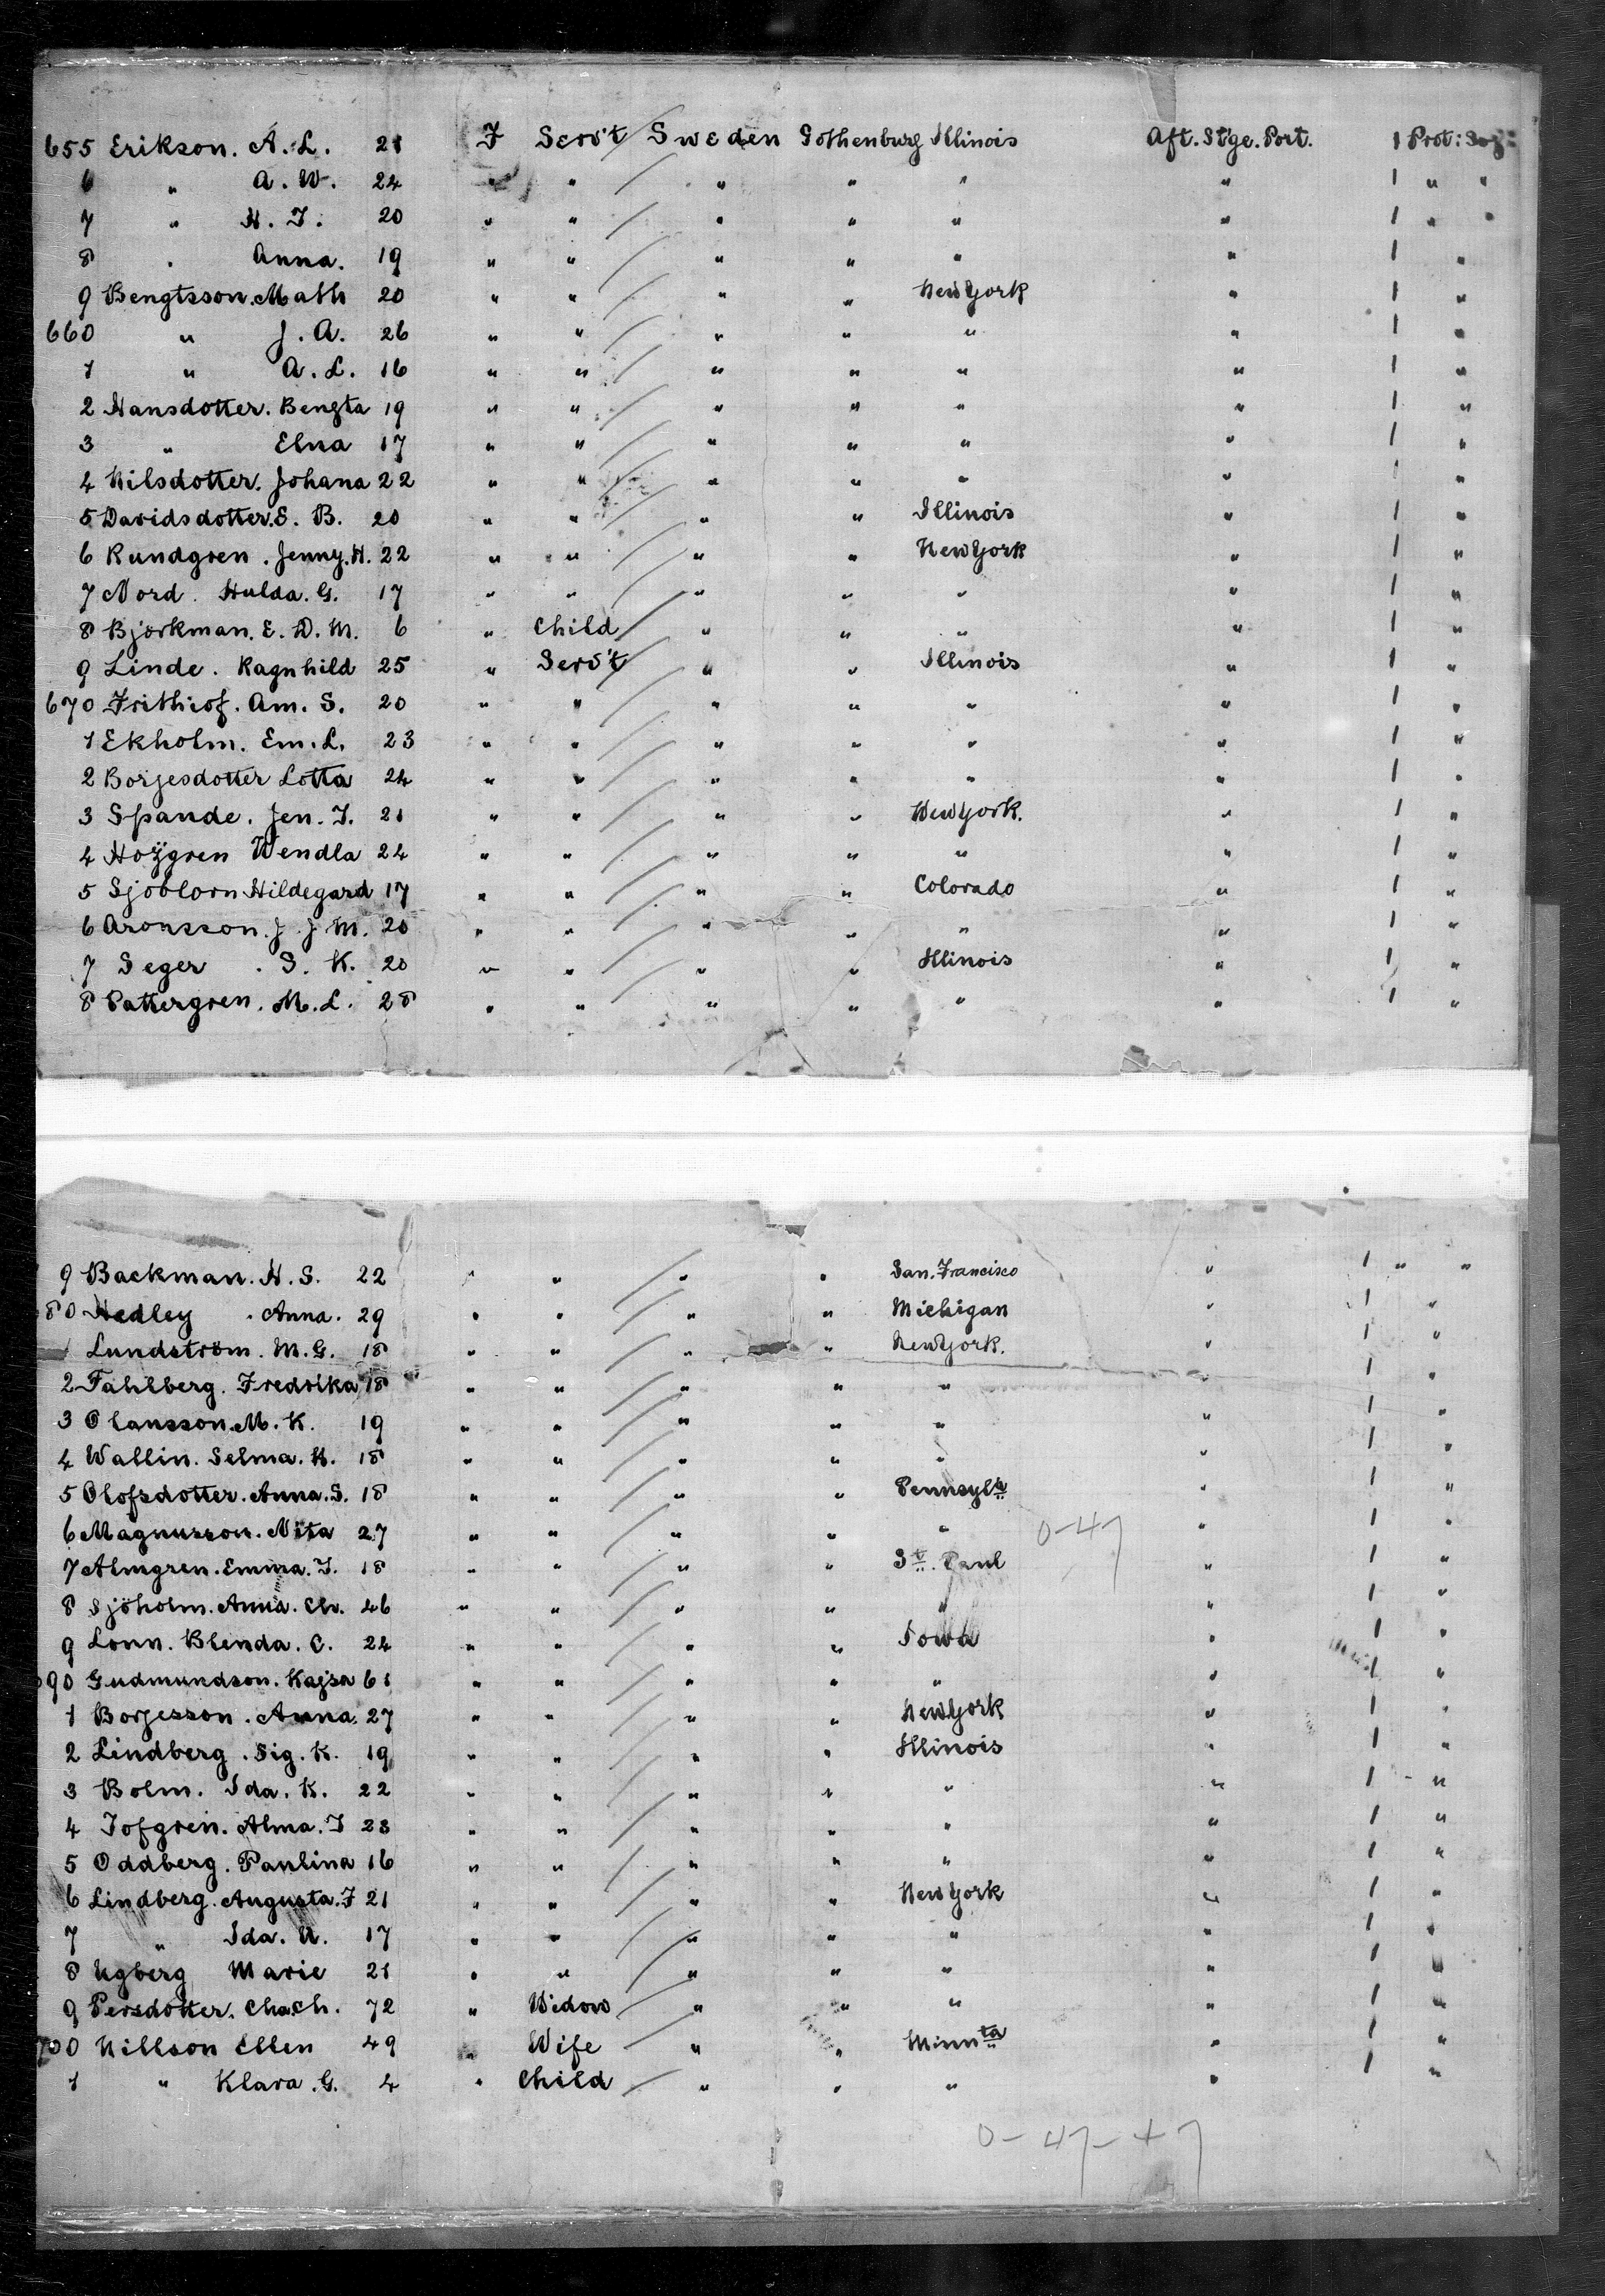 655 Erikson. A. L. 21 F Serv't Sweden Gothenburg Illinois Aft. Stge. Port. 1 Prot:
6 " A. W. 24 " " " " " " 1 " "
7 " H. J. 20 " " " " " " 1 " "
8 " Anna. 19 " " " " " " 1 "
9 Bengtsson. Math 20 " " " " New York " 1 "
660 " J. A. 26 " " " " " " 1 "
1 " A. L. 16 " " " " " " 1 "
2 Hansdotter. Bengta 19 " " " " " " 1 "
3 " Elna 17 " " " " " " 1 "
4 Nilsdotter. Johana 22 " " " " " " 1 "
5 Davidsdotter. E. B. 20 " " " " Illinois " 1 "
6 Rundgren. Jenny. H. 22 " " " " New York " 1 "
7 Nord. Hulda. G. 17 " " " " " " 1 "
8 Bjorkman. E. D. M. 6 " Child " " " " 1 "
9 Linde. Ragnhild 25 " Serv't " " Illinois " 1 "
670 Frithiof. Am. S. 20 " " " " " " 1 "
1 Ekholm. Em. L. 23 " " " " " " 1 "
2 Borjesdotter Lotta 24 " " " " " " 1 "
3 Spande. Jen. J. 21 " " " " New York. " 1 "
4 Hoÿgren Wendla 24 " " " " " " 1 "
5 Sjoblorn Hildegard 17 " " " " Colorado " 1 "
6 Aronsson. J. J M. 20 " " " " " " 1 "
7 Seger. S. K. 20 " " " " Illinois " 1 "
8 Pattergren. M. L. 28 " " " " " " 1 "
9 Backman. H. S. 22 " " " " San. Francisco " 1 " "
80 Hedley. Anna. 29 " " " " Michigan " 1 "
1 Lundström. M. G. 18 " " " " New York. " 1 "
2 Fahlberg. Fredrika 18 " " " " " " 1 "
3 Olansson. M. K. 19 " " " " " " 1 "
4 Wallin. Selma. H. 18 " " " " " " 1 "
5 Olofsdotter. Anna. S. 18 " " " " Pennsyla " 1 "
6 Magnusson. Nita 27 " " " " " 0-47 " 1 "
7 Almgren. Emma. J. 18 " " " " St. Paul " 1 "
8 Sjöholm. Anna. Ch. 46 " " " " " " 1 "
9 Lonn. Blenda. C. 24 " " " " Iowa " 1 "
90 Gudmundson. Kajsa 61 " " " " " " 1 "
1 Borjesson. Anna. 27 " " " " New York " 1 "
2 Lindberg. Sig. K. 19 " " " " Illinois " 1 "
3 Bolm. Ida. K. 22 " " " " " " 1 "
4 Jofgren. Alma. J 23 " " " " " " 1 "
5 Oddberg. Paulina 16 " " " " " " 1 "
6 Lindberg. Augusta. F 21 " " " " New York " 1 "
7 " Ida. U. 17 " " " " " " 1 "
8 Ugberg Marie 21 " " " " " " 1 "
9 Persdotter. Cha. Ch. 72 " Widow " " " " 1 "
700 Nillson Ellen 49 " Wife " " Minnta " 1 "
1 " Klara. G. 4 " Child " " " " 1 "
0-47-+7